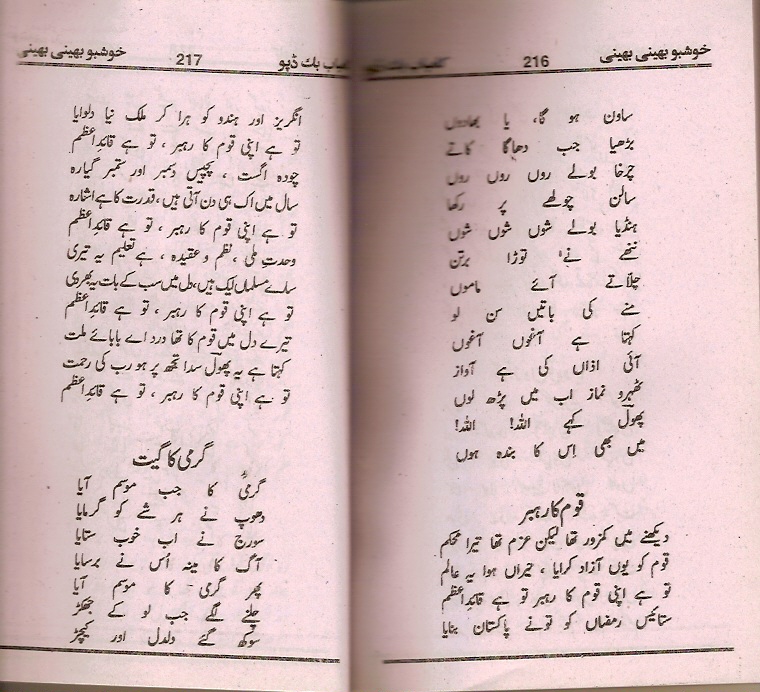 خوشبو بھینی بھینی
216
ساون ہو گا، یا بھادوں
بڑھیا جب دھاگا کاتے
چرخا بولے روں روں روں
سالن چولھے پر رکھا
ہنڈیا بولے شوں شوں شوں
ننھے نے توڑا برتن
چلّاتے آئے ماموں
منے کی باتیں سن لو
کہتا ہے آغوں آغوں
آئی اذاں کی ہے آواز
ٹھہرو نماز اب میں پڑھ لوں
پھولؔ کہے اللہ! اللہ!
میں بھی اِس کا بندہ ہوں
قوم کا رہبر
دیکھنے میں کمزور تھا لیکن عزم تھا تیرا محکم
قوم کو یوں آزاد کرایا ، حیراں ہوا یہ عالم
تو ہے اپنی قوم کا رہبر تو ہے قائدِاعظم
ستائیس رمضاں کو تونے پاکستان بنایا
خوشبو بھینی بھینی
217
بک ڈپو
انگریز اور ہندو کو ہرا کر ملک نیا دلوایا
تو ہے اپنی قوم کا رہبر ، تو ہے قائدِاعظم
چودہ اگست ، پچیس دسمبر اور ستمبر گیارہ
سال میں اک ہی دن آتی ہیں، قدرت کا ہے اشارہ
تو ہے اپنی قوم کا رہبر ، تو ہے قائدِاعظم
وحدتِ ملی ، نظم و عقیدہ ، ہے تعلیم یہ تیری
سارے مسلماں ایک ہیں، دل میں سب کے بات یہ بھر دی
تو ہے اپنی قوم کا رہبر ، تو ہے قائدِاعظم
تیرے دل میں قوم کا تھا درد اے بابائے ملت
کہتا ہے یہ پھولؔ سدا تجھ پر ہو رب کی رحمت
تو ہے اپنی قوم کا رہبر ، تو ہے قائدِاعظم
گرمی کا گیت
گرمی کا جب موسم آیا
دھوپ نے ہر شے کو گرمایا
سورج نے اب خوب ستایا
آگ کا مینہ اُس نے برسایا
پھر گرمی کا موسم آیا
چلنے لگے جب لو کے جھکڑ
سوکھ گئے دلدل اور کیچڑ